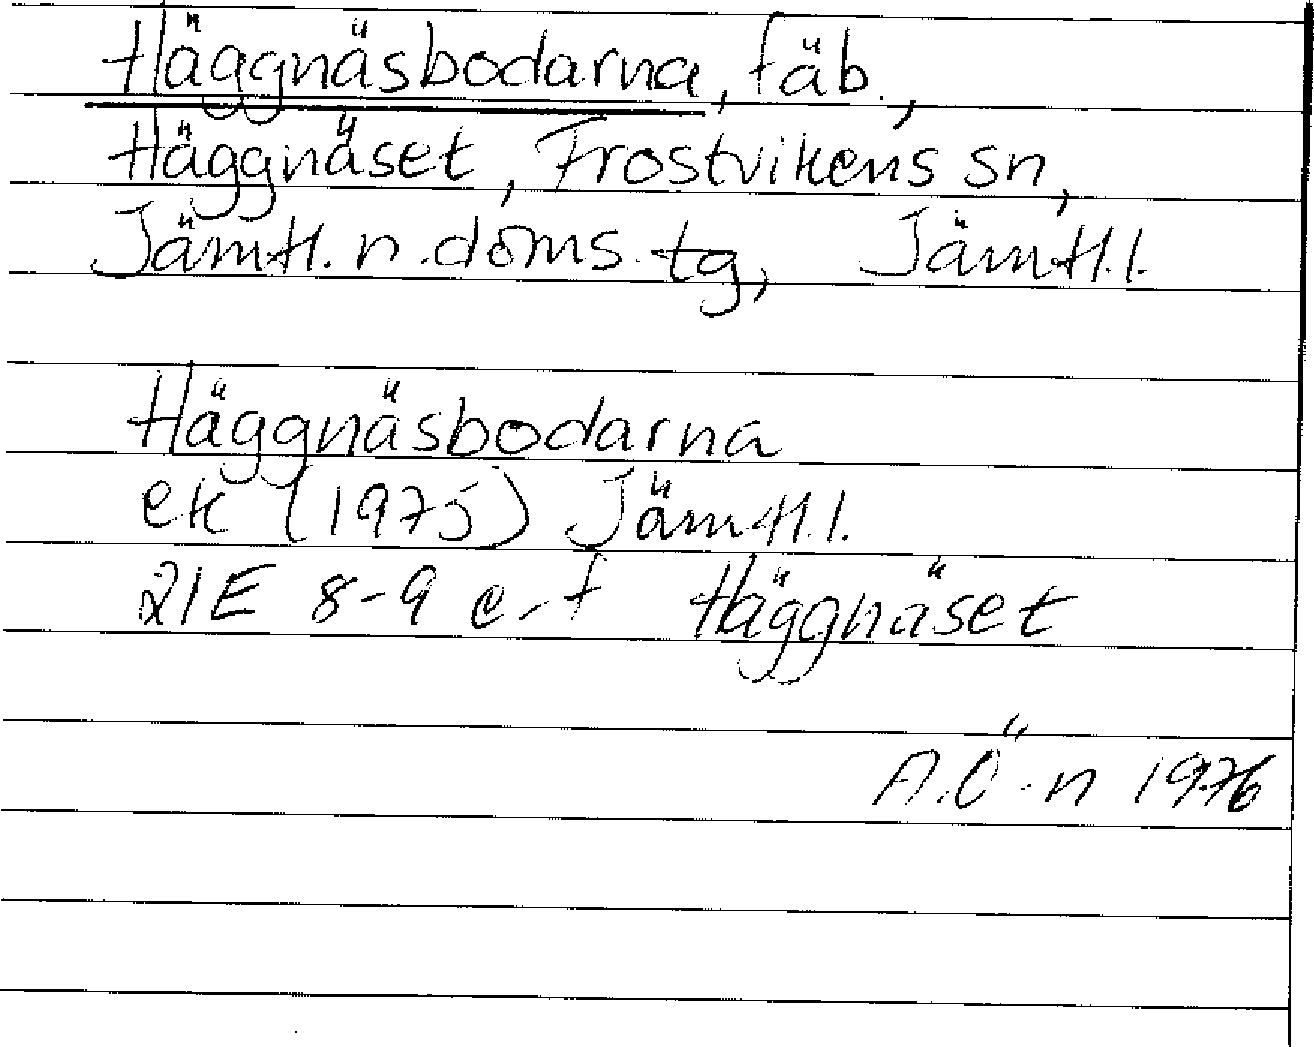 Häggnäsbodarna, fäb.,
Häggnäset, Frostvikens sn,
Jämtl. n. doms. tg, Jämtl. l.
Häggnäsbodarna
ek (1975) Jämtl. l.
21E 8-9 e-f Häggnäset
A.Ö-n 1976